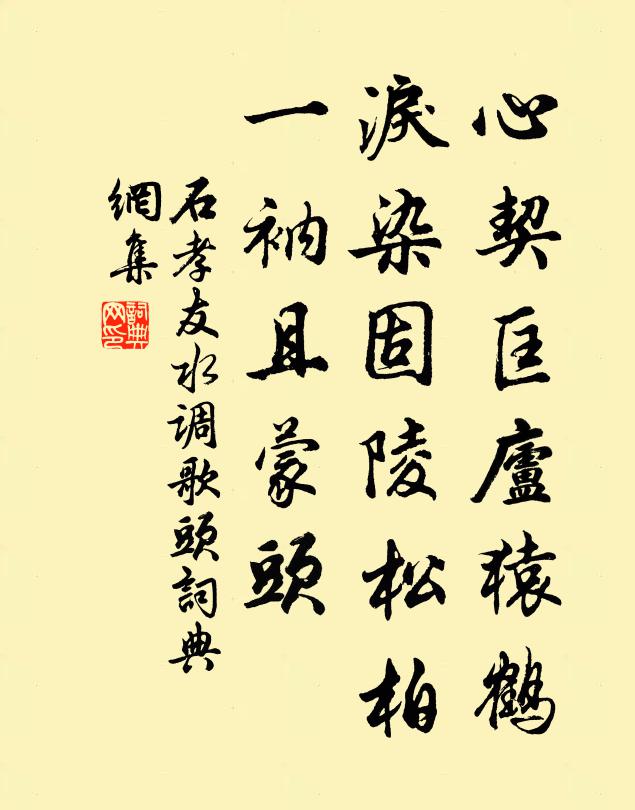 心契匡廬猿鶴
淚染固陵松柏
一衲且蒙頭
石孝友水调歌頭詞典
網集
詞典
网印